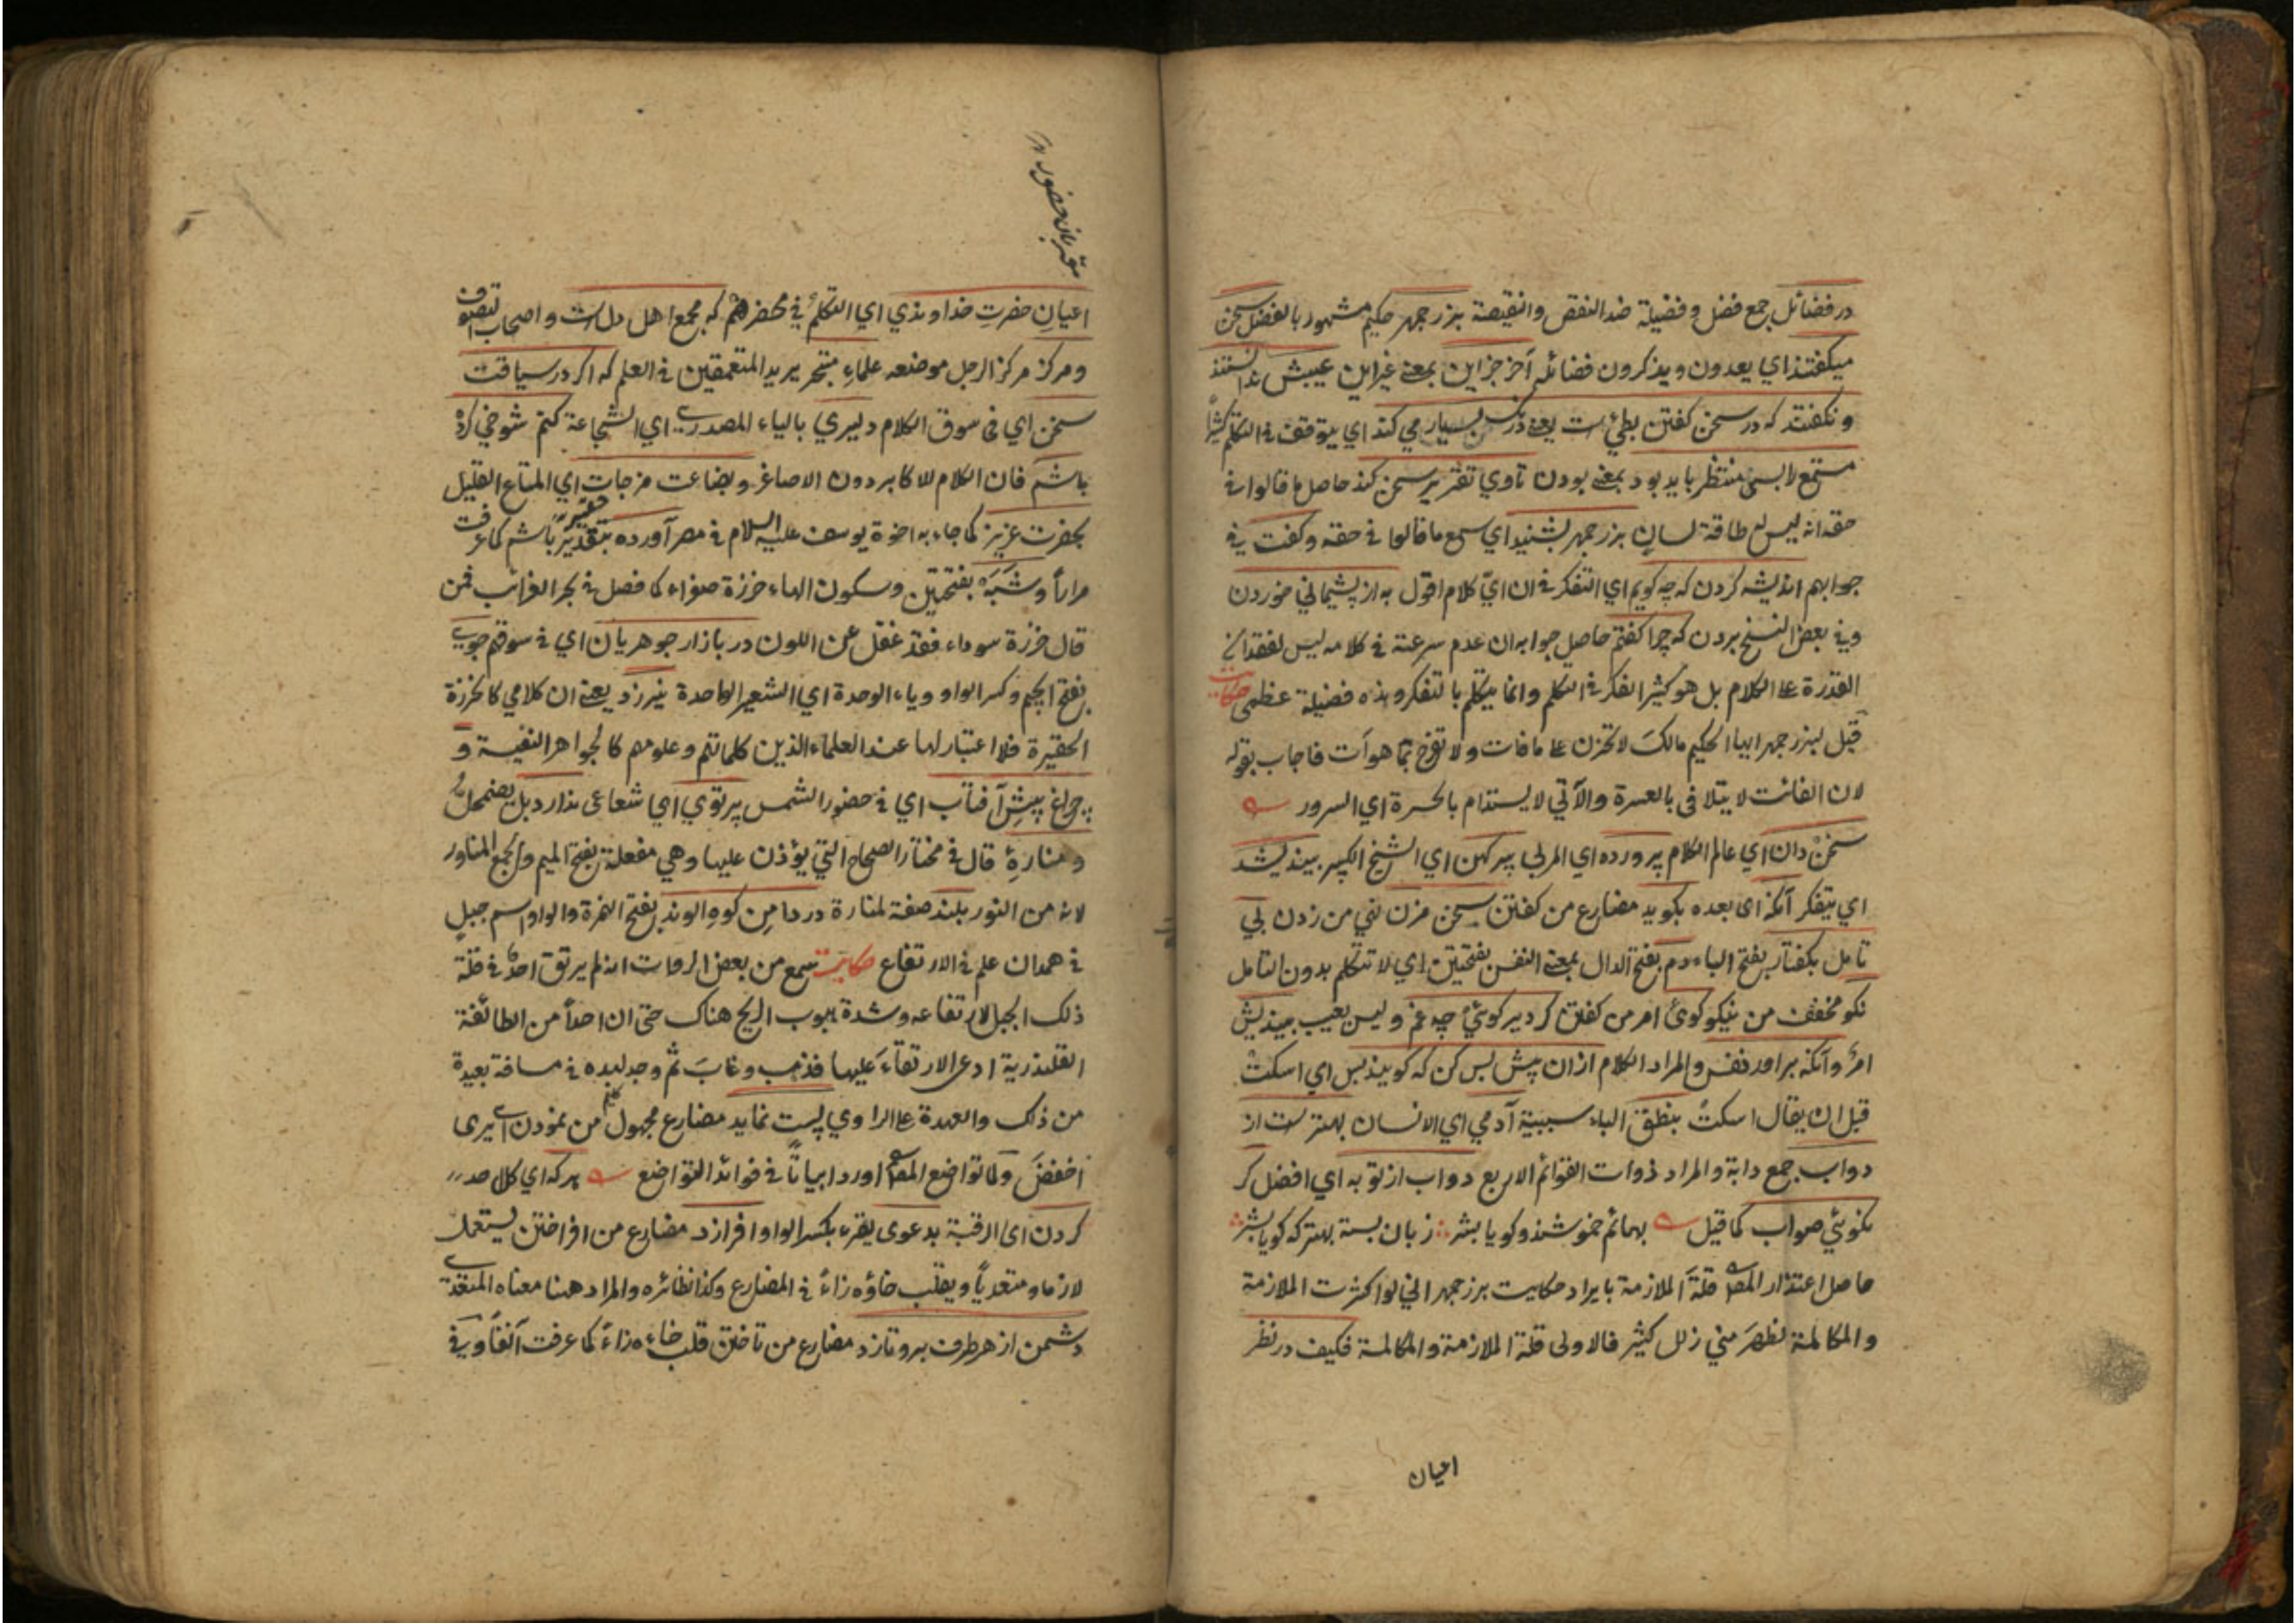 در فضائل جمع فضل و فضيلة ضد النقص والنقيصة بزرجمهر حكيم مشهور بالفضل سخن
ميكفتند اي يعدون ويذكرون فضائله آخر جزاين بمعنى غير اين عيبش ندانستند
ونكفتند كه در سخن كفتن بطئ است يعنى درنك بسيار مي كند اي يتوقف في التكلم كثيرا
مستمع را بسى منتظر بايد بود بمعنى بودن تا وي تقرير سخن كند حاصل ما قالوا في
حقه انه ليس له طاقة لسان بزرجمهر بشنيد اي سمع ما قالوا في حقه وكفت في
جوابهم انديشه كردن كه چه كويم اي التفكر في ان اي كلام اقول به از پشيماني خوردن
وفي بعض النسخ بردن كه چرا كفتم حاصل جوابه ان عدم سرعته في كلامه ليس لفقدان
القدرة على الكلام بل هو كثير الفكر في التكلم وانما يتكلم بالتفكر وهذه فضيلة عظمى حكايت
قيل لبزرجمهر ايها الحكيم مالك لا تحزن على ما فات ولا تفرح بما هو آت فاجاب بقوله
لان الفائت لا يتلافى بالعبرة والآتي لا يستدام بالحسرة اي السرور
سخن دان اي عالم الكلام پرورده اي المربى پير كهن اي الشيخ الكبير بينديشد
اي يتفكر آنكه اى بعده بكويد مضارع من كفتن سخن مزن نهي من زدن بي
تامل بكفتار بفتح الباء دم بفتح الدال بمعنى النفس بفتحتين اي لا تتكلم بدون التامل
نكو مخفف من نيكو كوى امر من كفتن كر دير كوئي چه غم وليس بعيب بينديش
امر وآنكه براور نفس والمراد الكلام ازان پيش بس كن كه كويند بس اي اسكت
قبل ان يقال اسكت بنطق الباء سببية آدمي اي الانسان بهتر است از
دواب جمع دابة والمراد ذوات القوائم الاربع دواب از تو به اي افضل كر
نكوئي صواب كما قيل بهائم خموشند وكويا بشر زبان بسته بهتر كه كويا بشر
حاصل اعتذار المص قلة الملازمة بايراد حكايت برزجمهر اني لو اكثرت الملازمة
والمكالمة لظهر مني زلل كثير فالاولى قلة الملازمة والمكالمة فكيف در نظر
اعيان
مقربان حضور
اعيان حضرت خداوندي اي التكلم في محضرهم كه مجمع اهل دل است واصحاب التصوف
ومركز مركز الرجل موضعه علماء متبحر يريد المتعمقين في العلم كه اكر در سياقت
سخن اي في سوق الكلام دليري بالياء المصدري اي الشجاعة كنم شوخي كرده
باشم فان الكلام للاكابر دون الاصاغر وبضاعت مزجات اي المتاع القليل
بحضرت عزيز كما جاء به اخوة يوسف عليه السلام في مصر آورده باشم كما عرفت
مرارا وشبه بفتحتين وسكون الهاء خرزة صفراء كما فصل في بحر الغرائب فمن
قال خرزة سوداء فقد غفل عن اللون در بازار جوهريان اي في سوقهم جوى
بفتح الجيم وكسر الواو وياء الوحدة اي الشعير الواحدة نيرزد يعنى ان كلامي كالخرزة
الحقيرة فلا اعتبار لها عند العلماء الذين كلماتهم وعلومهم كالجواهر النفيسة و
چراغ پيش آفتاب اي في حضور الشمس پرتوي اي شعاعى ندارد بل يضمحل
ومنارة قال في مختار الصحاح التي يؤذن عليها وهي مفعلة بفتح الميم والجمع المناور
لانه من النور بلند صفة لمنارة در دامن كوه الوند بفتح الهمزة والواو اسم جبل
في همدان علم في الارتفاع حكايت سمع من بعض الروات انه لم يرتق احد في قلة
ذلك الجبل لارتفاعه وشدة هبوب الريح هناك حتى ان احدا من الطائفة
القلندرية ادعى الارتقاء عليها فذهب وغاب ثم وجد لبده في مسافة بعيدة
من ذلك والعهدة على الراوي پست نمايد مضارع مجهول من نمودن اي يرى
اخفض ولما تواضع المص اورد ابياتا في فوائد التواضع هركه اي كل احد
كردن اى الرقبة بدعوى يقرء بكسر الواو افرازد مضارع من افراختن يستعمل
لازما ومتعديا ويقلب خاؤه زاء في المضارع وكذا نظائره والمراد هنا معناه المتعدي
دشمن از هر طرف برو تازد مضارع من تاختن قلب خاءه زاء كما عرفت آنفا وفي